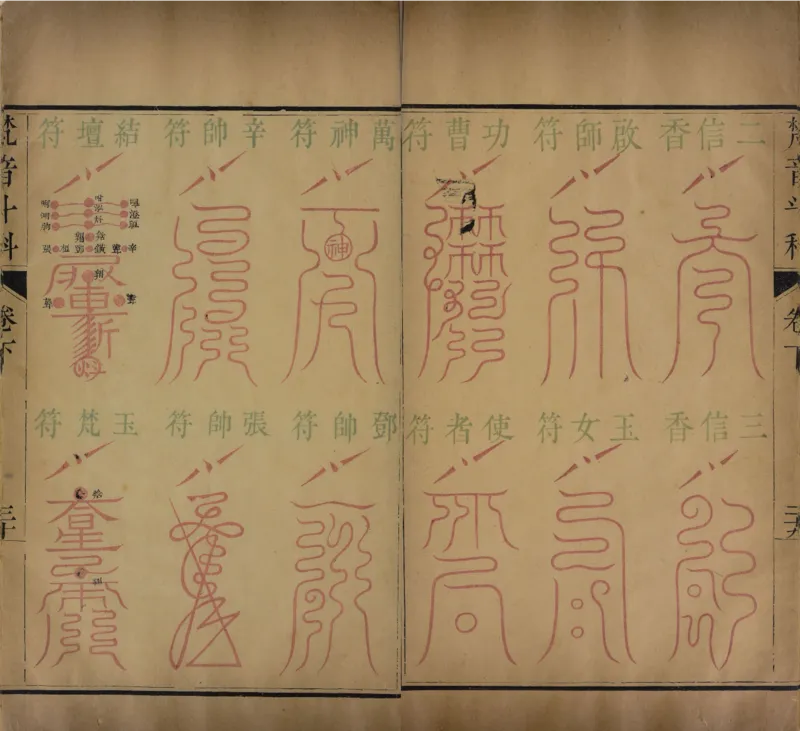 梵音斗科
卷下
二九
二信香
啟師符
功曹符
三信香
玉女符
使者符
萬神符
神
辛帥符
結壇符
鄧帥符
張帥符
玉梵符
梵音斗科
卷下
三十